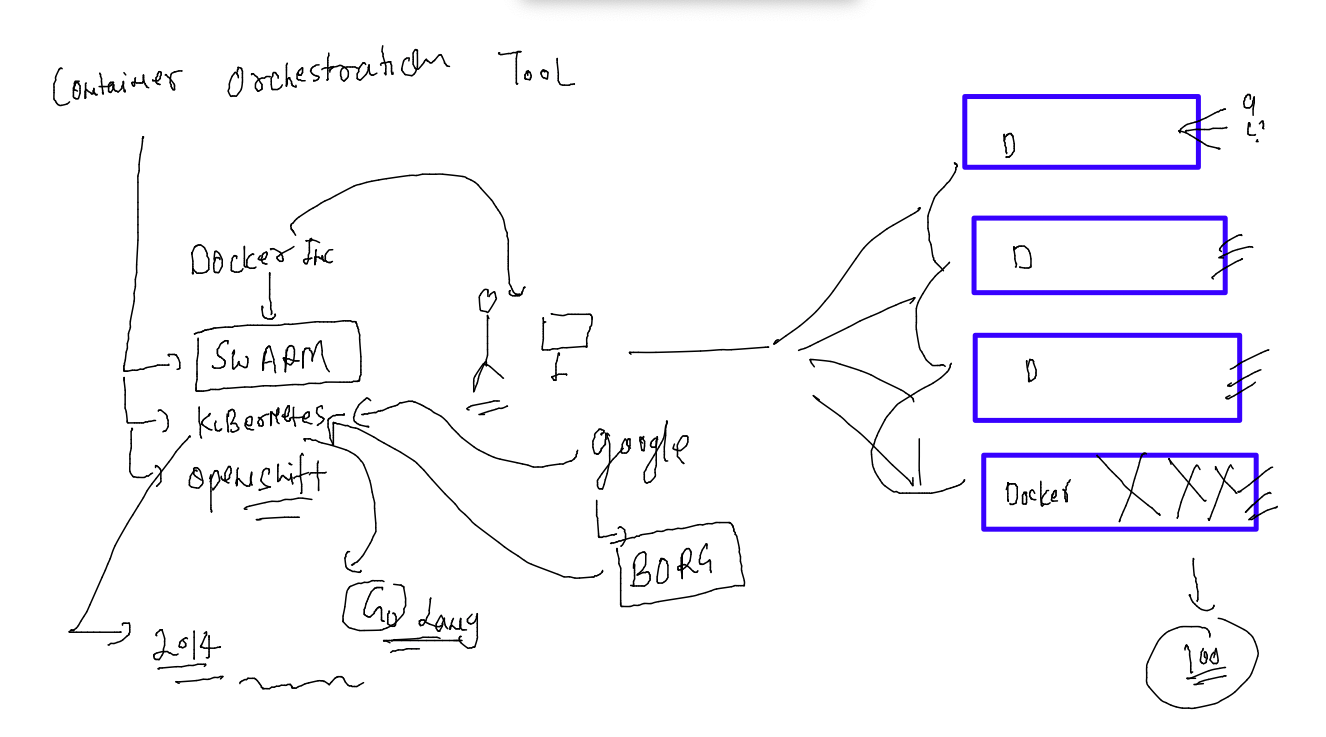 Container Orchestration Tool
Docker Inc
SWARM
KuBernetes
openshift
google
BORG
Go Lang
2014
D
D
D
Docker
100